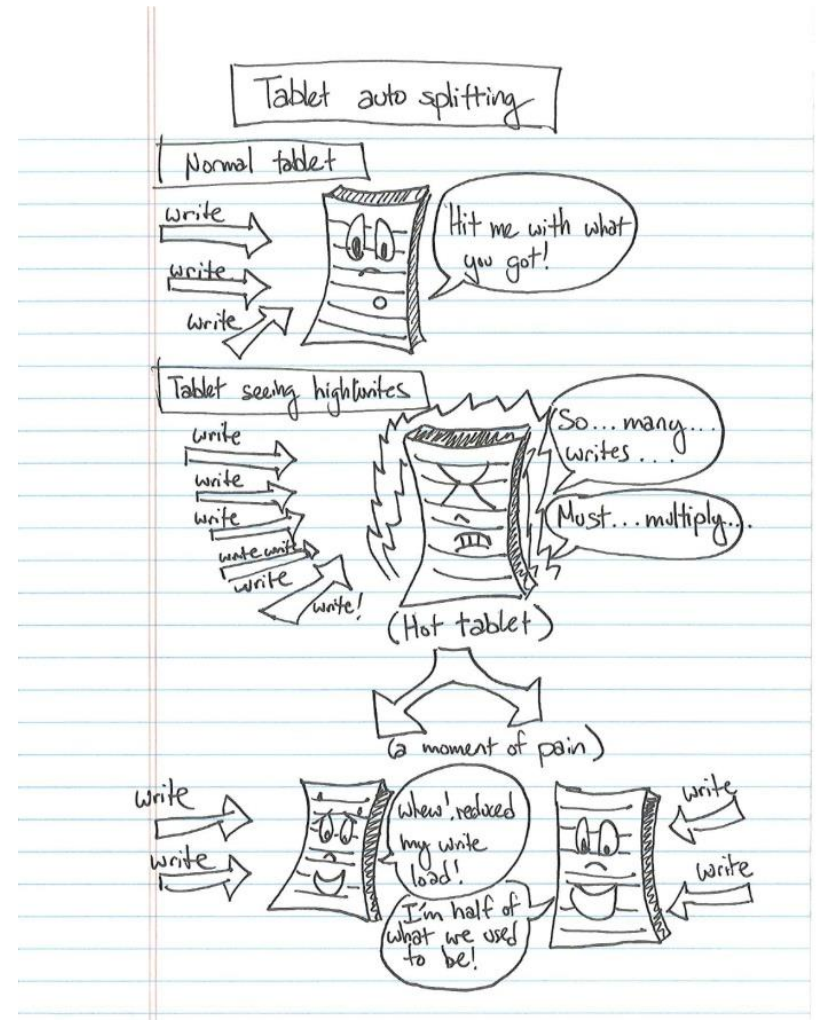 Tablet auto splitting
Normal tablet
write
write
write
Hit me with what
you got!
Tablet seeing high writes
write
write
write
write write
write
write!
So... many...
writes...
Must... multiply...
(Hot tablet)
(a moment of pain)
write
write
whew! reduced
my write
load!
I'm half of
what we used
to be!
write
write